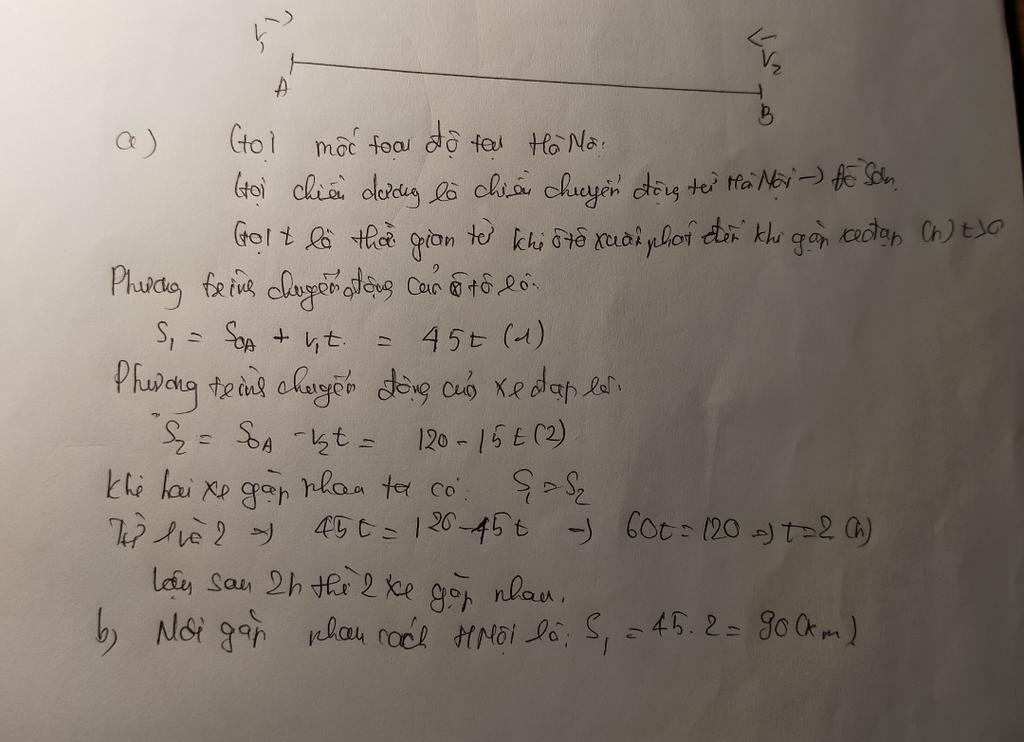 V₁ →
← V₂
A
B
a) Gọi mốc toạ độ tại Hà Nội
Gọi chiều dương là chiều chuyển động từ Hà Nội → Đồ Sơn
Gọi t là thời gian từ khi ôtô xuất phát đến khi gặp xe đạp (h) t>0
Phương trình chuyển động của ôtô là:
S₁ = S₀A + V₁t = 45t (1)
Phương trình chuyển động của xe đạp là:
S₂ = S₀A - V₂t = 120 - 15t (2)
Khi hai xe gặp nhau ta có: S₁ = S₂
Từ 1 và 2 => 45t = 120 - 45t → 60t = 120 => t = 2 (h)
Vậy sau 2h thì 2 xe gặp nhau.
b) Nơi gặp nhau cách HNội là: S₁ = 45.2 = 90 (km)